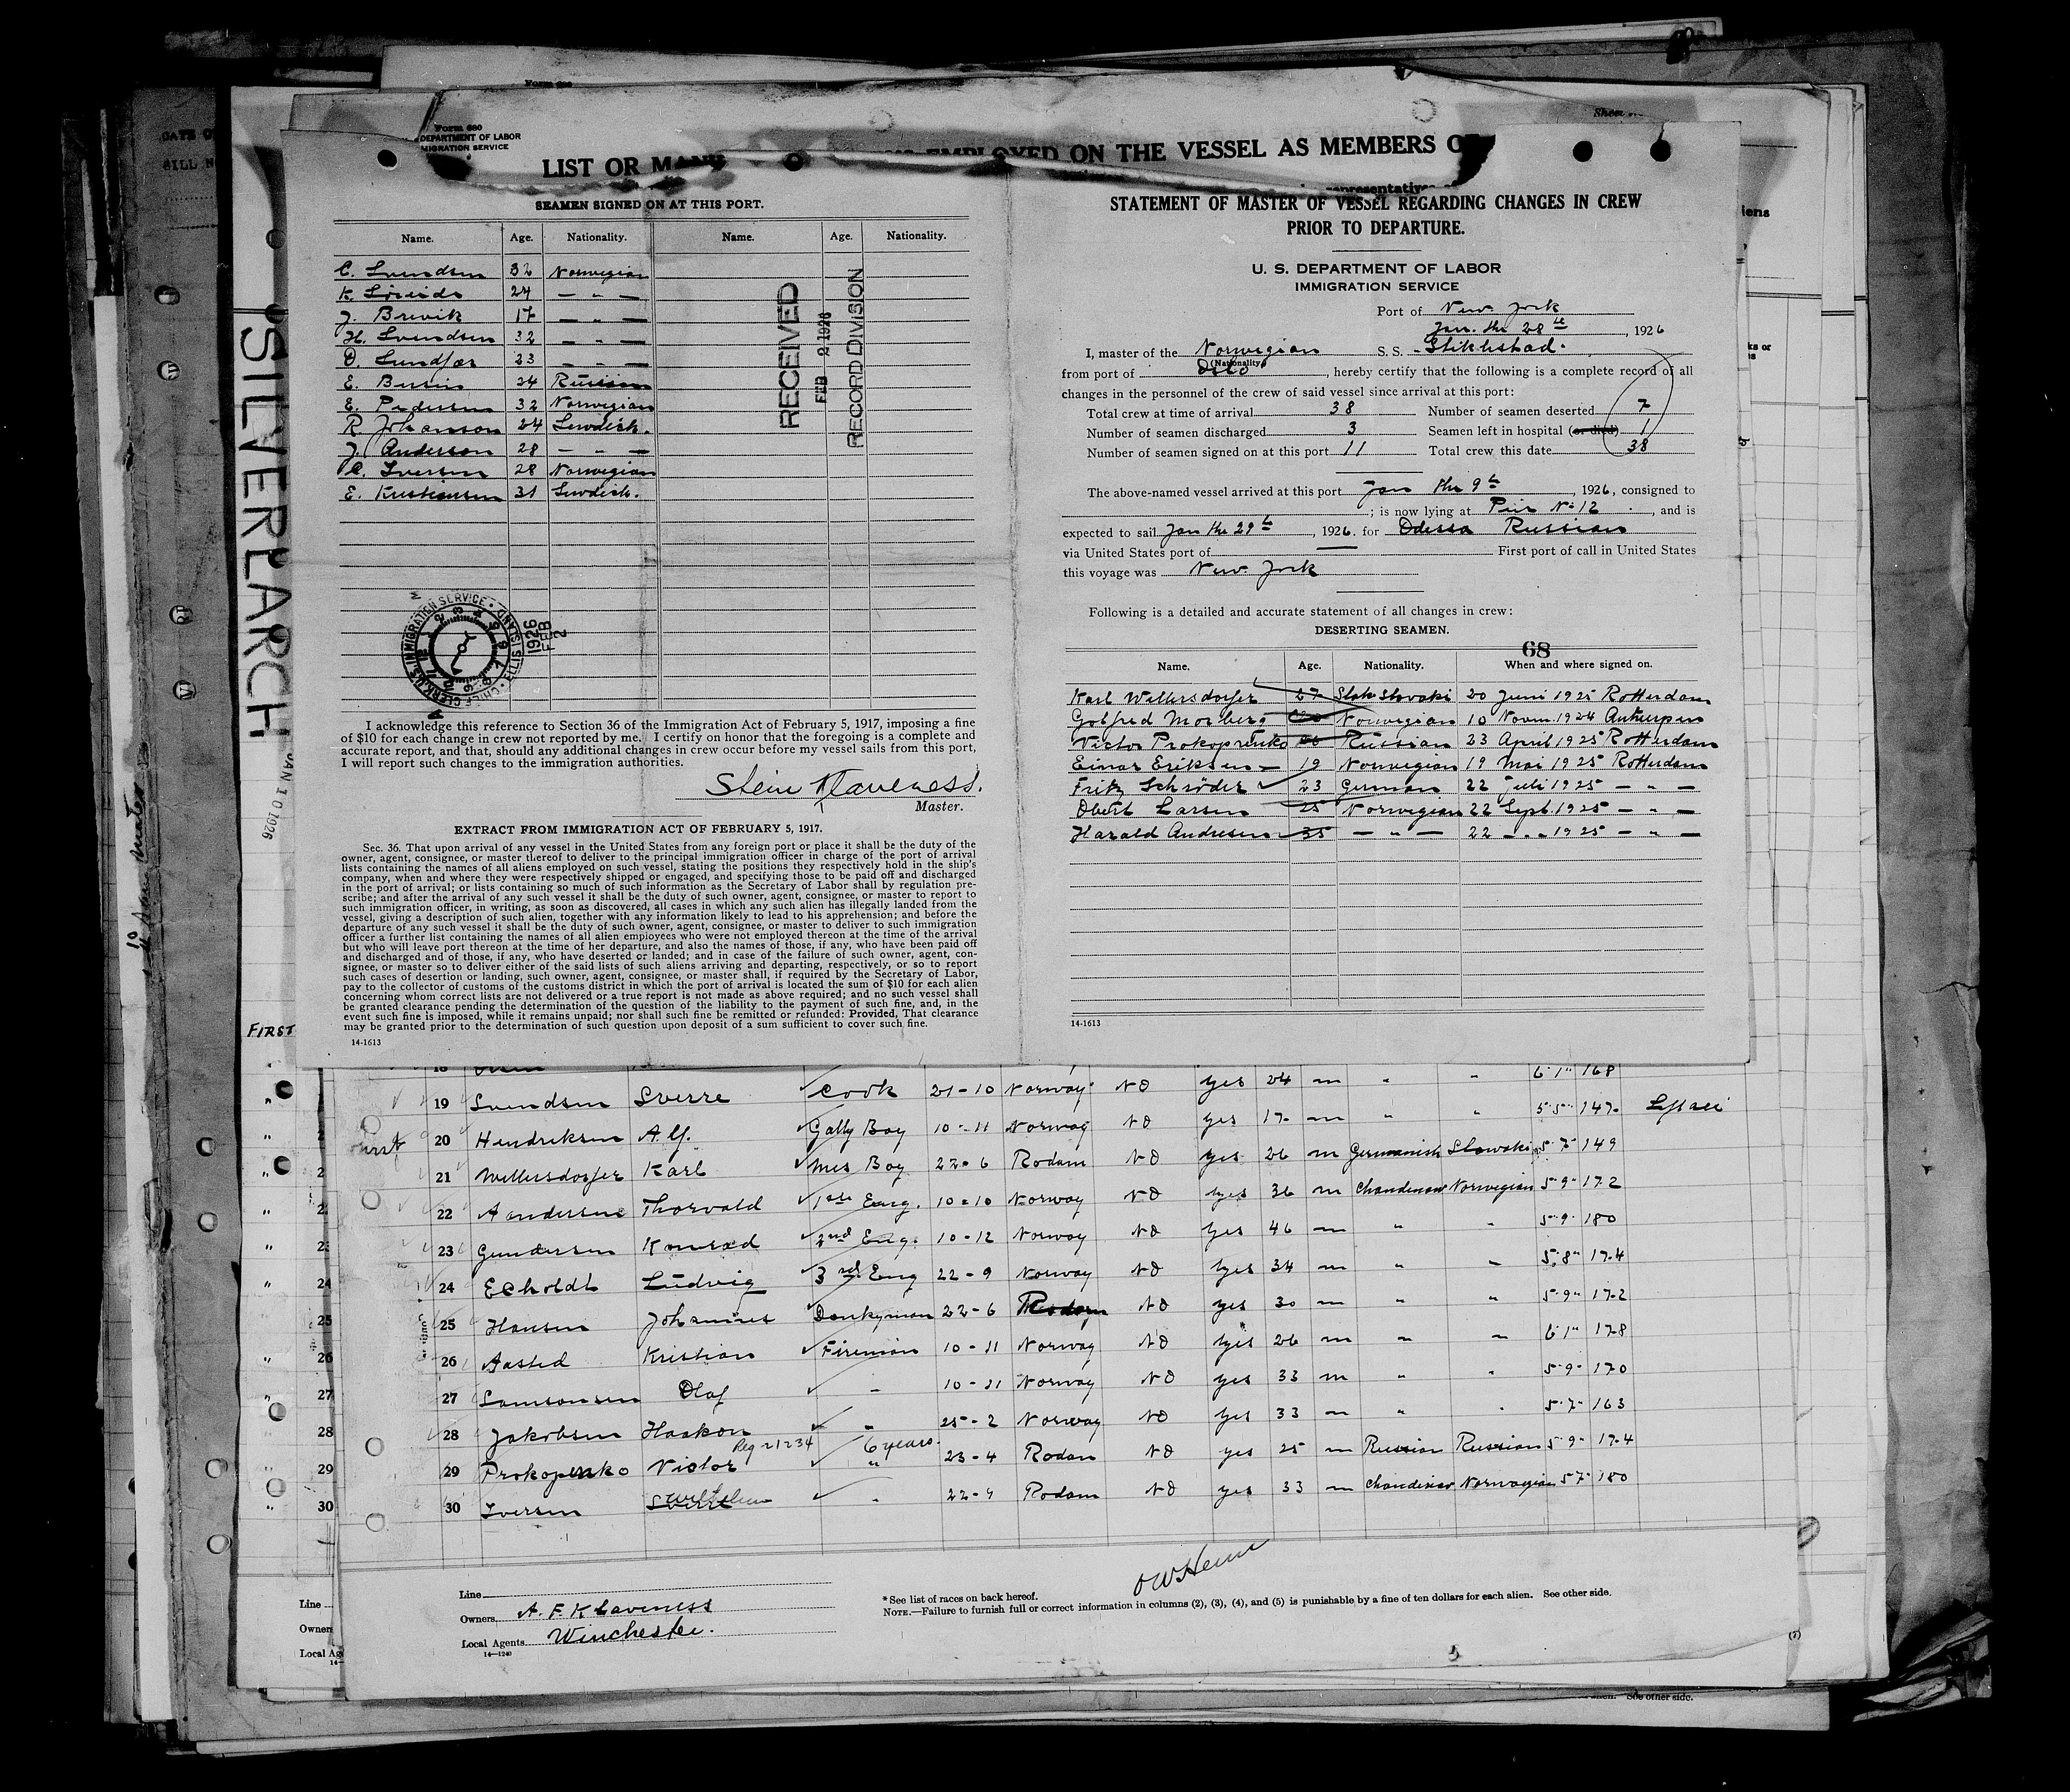 Form 680
DEPARTMENT OF LABOR
MIGRATION SERVICE
LIST OR EMPLOYED ON THE VESSEL AS MEMBERS O
SEAMEN SIGNED ON AT THIS PORT.
Name. Age. Nationality. Name. Age. Nationality.
C. Svendsen 32 Norwegian
K. 24 — „ —
J. Brevik 17 — „ —
H. Svendsen 32 — „ —
O. 23 — „ —
E. 24 Russian
E. Pedersen 32 Norwegian
R. Johanson 24 Swedish.
J. Anderson 28 — „ —
C. Iversen 28 Norwegian
E. Kristiansen 31 Swedish.
RECEIVED
FEB 2 1926
RECORD DIVISION
1926
FEB
2
I acknowledge this reference to Section 36 of the Immigration Act of February 5, 1917, imposing a fine
of $10 for each change in crew not reported by me. I certify on honor that the foregoing is a complete and
accurate report, and that, should any additional changes in crew occur before my vessel sails from this port,
I will report such changes to the immigration authorities.
Stein Klaveness.
Master.
EXTRACT FROM IMMIGRATION ACT OF FEBRUARY 5, 1917.
Sec. 36. That upon arrival of any vessel in the United States from any foreign port or place it shall be the duty of the
owner, agent, consignee, or master thereof to deliver to the principal immigration officer in charge of the port of arrival
lists containing the names of all aliens employed on such vessel, stating the positions they respectively hold in the ship's
company, when and where they were respectively shipped or engaged, and specifying those to be paid off and discharged
in the port of arrival; or lists containing so much of such information as the Secretary of Labor shall by regulation pre-
scribe; and after the arrival of any such vessel it shall be the duty of such owner, agent, consignee, or master to report to
such immigration officer, in writing, as soon as discovered, all cases in which any such alien has illegally landed from the
vessel, giving a description of such alien, together with any information likely to lead to his apprehension; and before the
departure of any such vessel it shall be the duty of such owner, agent, consignee, or master to deliver to such immigration
officer a further list containing the names of all alien employees who were not employed thereon at the time of the arrival
but who will leave port thereon at the time of her departure, and also the names of those, if any, who have been paid off
and discharged and of those, if any, who have deserted or landed; and in case of the failure of such owner, agent, con-
signee, or master so to deliver either of the said lists of such aliens arriving and departing, respectively, or so to report
such cases of desertion or landing, such owner, agent, consignee, or master shall, if required by the Secretary of Labor,
pay to the collector of customs of the customs district in which the port of arrival is located the sum of $10 for each alien
concerning whom correct lists are not delivered or a true report is not made as above required; and no such vessel shall
be granted clearance pending the determination of the question of the liability to the payment of such fine, and, in the
event such fine is imposed, while it remains unpaid; nor shall such fine be remitted or refunded: Provided, That clearance
may be granted prior to the determination of such question upon deposit of a sum sufficient to cover such fine.
14-1613
STATEMENT OF MASTER OF VESSEL REGARDING CHANGES IN CREW
PRIOR TO DEPARTURE.
U. S. DEPARTMENT OF LABOR
IMMIGRATION SERVICE
Port of New York
Jan. the 28th, 1926
I, master of the Norwegian S. S. Stiklestad.
(Nationality)
from port of Oslo, hereby certify that the following is a complete record of all
changes in the personnel of the crew of said vessel since arrival at this port:
Total crew at time of arrival 38 Number of seamen deserted 7
Number of seamen discharged 3 Seamen left in hospital (or died) 1
Number of seamen signed on at this port 11 Total crew this date 38
The above-named vessel arrived at this port Jan the 9th, 1926, consigned to
; is now lying at Pier No 12, and is
expected to sail Jan the 29th, 1926. for Odessa Russian
via United States port of — First port of call in United States
this voyage was New York
Following is a detailed and accurate statement of all changes in crew:
DESERTING SEAMEN.
68
Name. Age. Nationality. When and where signed on.
Karl Wellersdorfer 27 Slovaki 20 Juni 1925 Rotterdam
Gotfred Morberg Norwegian 10 Novm. 1924 Antwerpen
Victor Prokopenko 26 Russian 23 April 1925 Rotterdam
Einar Eriksen 19 Norwegian 19 Mai 1925 Rotterdam
Fritz Schröder 23 German 22 Juli 1925 — „ —
Obert Larsen 25 Norwegian 22 Sept. 1925 — „ —
Harald Andresen 35 — „ — 22 — „ — 1925 — „ —
14-1613
SILVERLARCH
JAN 10 1926
FIRST
18 24 m „ „ 6·1" 168
19 Svendsen Sverre Cook 21-10 Norway NO yes 24 m „ „
20 Hendriksen Alf. Gally Boy 10-11 Norway NO yes 17 m „ „ 5·5" 147
21 Wellersdorfer Karl Mes Boy 22-6 Rodam NO yes 26 m Germanish Slowaki 5·7" 149
22 Aandersen Thorvald 1ste Eng. 10-10 Norway NO yes 36 m Chandinav Norwegian 5·9" 172
23 Gundersen Konrad 2nd Eng. 10-12 Norway NO yes 46 m „ „ 5·9" 180
24 Echoldt Ludvig 3rd Eng 22-9 Norway NO yes 34 m „ „ 5·8" 174
25 Hansen Johannes Donkyman 22-6 Rodam NO yes 30 m „ „ 5·9" 172
26 Aasted Kristian Fireman 10-11 Norway NO yes 26 m „ „ 6·1" 178
27 Samsonsen Olaf „ 10-11 Norway NO yes 33 m „ „ 5·9" 170
28 Jakobsen Haakon „ 25-2 Norway NO yes 33 m „ „ 5·7" 163
Reg 21234 6 years.
29 Prokopenko Victor „ 23-4 Rodam NO yes 25 m Russian Russian 5·9" 174
30 Iversen Sverre Wilhelm „ 22-9 Rodam NO yes 33 m Chandinav Norwegian 5·7" 180
Line
Owners A. F. Klaveness
Local Agents Winchester.
14—1240
*See list of races on back hereof.
NOTE.—Failure to furnish full or correct information in columns (2), (3), (4), and (5) is punishable by a fine of ten dollars for each alien. See other side.
Line
Owners
Local Ag
See other side.